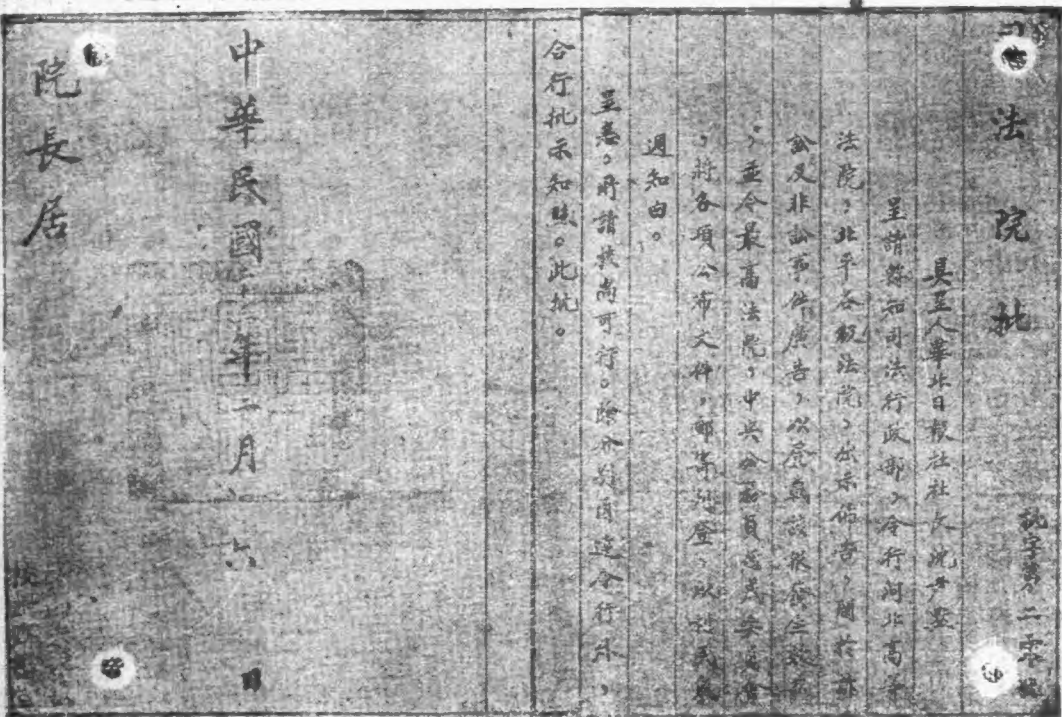 法院批
批字第二零號
具呈人華北日報社社長沈尹默
呈請轉知司法行政部,令行河北高等
法院,北平各級法院,出示佈告,關於訴
訟及非訟事件廣告,以登載該報發生效力
。並令最高法院,中央公務員懲戒委員會
,將各項公布文件,郵寄刊登,以利民眾
週知由。
呈悉。所請核尚可行。除分別函達令行外,
合行批示知照。此批。
中華民國二十一年二月六日
院長居